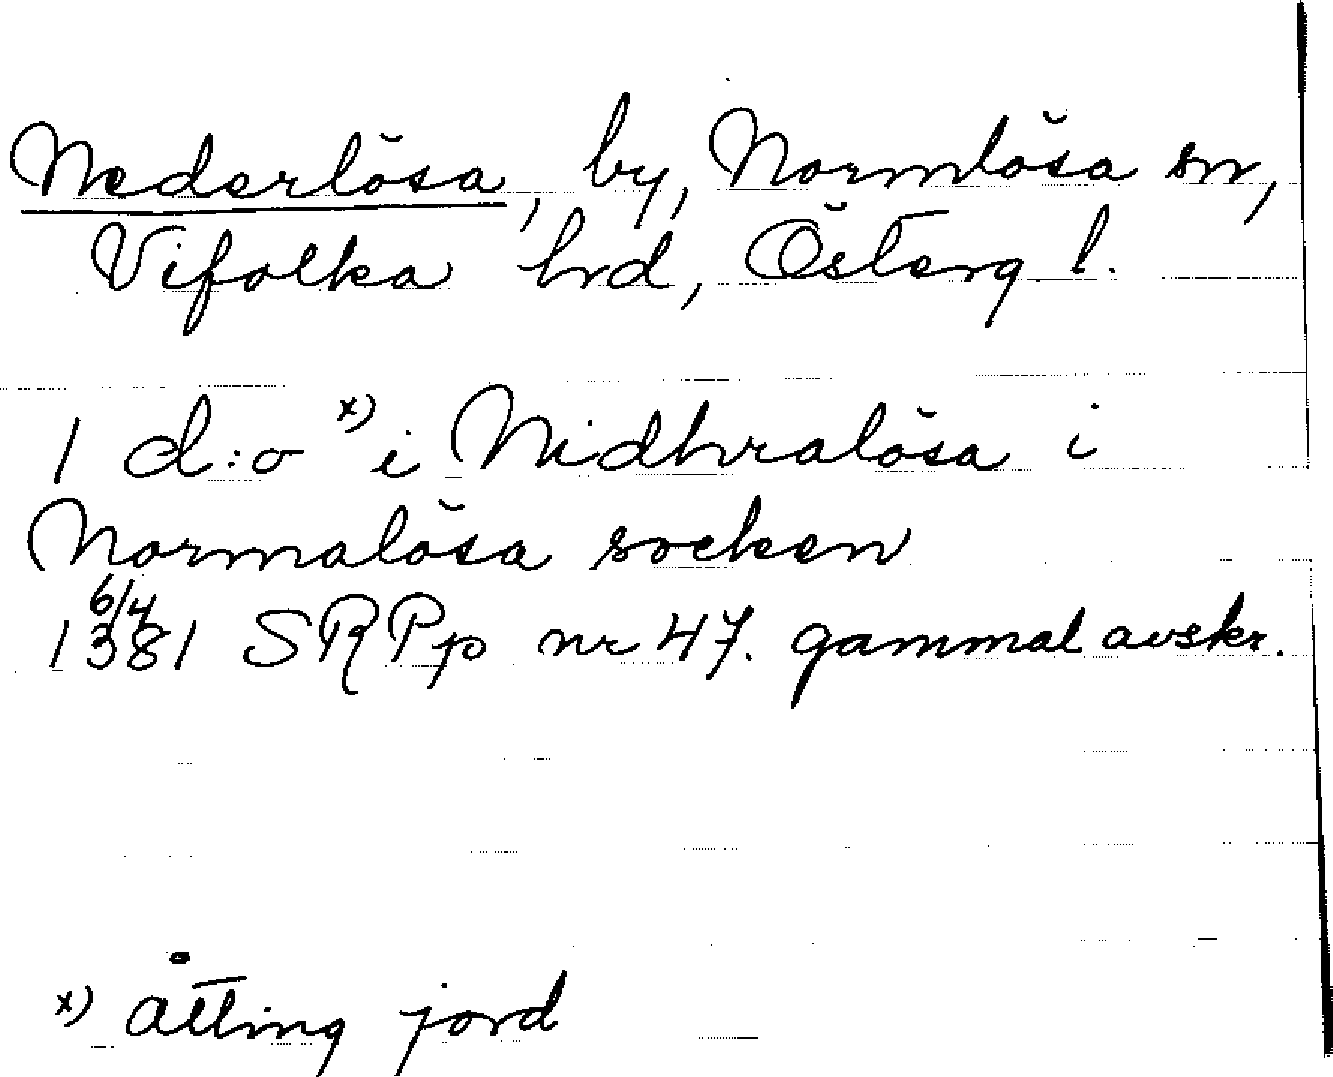 Nederlösa, by, Normlösa sn,
Vifolka hrd, Österg l.
1 d:o x) i Nidhralösa i
Normalösa socken
6/4
1381 SRPp nr 47. gammal avskr.
x) åtting jord